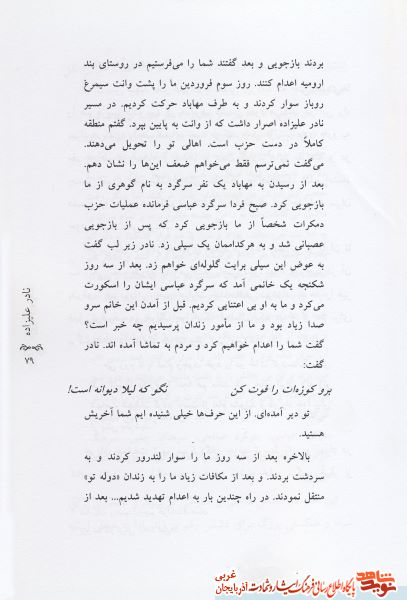 بردند بازجویی و بعد گفتند شما را می‌فرستیم در روستای بند
ارومیه اعدام کنند. روز سوم فروردین ما را پشت وانت سیمرغ
روباز سوار کردند و به طرف مهاباد حرکت کردیم. در مسیر
نادر علیزاده اصرار داشت که از وانت به پایین بپرد. گفتم منطقه
کاملاً در دست حزب است. اهالی تو را تحویل می‌دهند.
می‌گفت نمی‌ترسم فقط می‌خواهم ضعف این‌ها را نشان دهم.
بعد از رسیدن به مهاباد یک نفر سرگرد به نام گوهری از ما
بازجویی کرد. صبح فردا سرگرد عباسی فرمانده عملیات حزب
دمکرات شخصاً از ما بازجویی کرد که پس از بازجویی
عصبانی شد و به هرکداممان یک سیلی زد. نادر زیر لب گفت
به عوض این سیلی برایت گلوله‌ای خواهم زد. بعد از سه روز
شکنجه یک خانمی آمد که سرگرد عباسی ایشان را اسکورت
می‌کرد و ما به او بی اعتنایی کردیم. قبل از آمدن این خانم سرو
صدا زیاد بود و ما از مأمور زندان پرسیدیم چه خبر است؟
گفت شما را اعدام خواهیم کرد و مردم به تماشا آمده اند. نادر
گفت:
برو کوزه‌ات را فوت کن نگو که لیلا دیوانه است!
تو دیر آمده‌ای. از این حرف‌ها خیلی شنیده ایم شما آخریش
هستید.
بالاخره بعد از سه روز ما را سوار لندرور کردند و به
سردشت بردند. و بعد از مکافات زیاد ما را به زندان «دوله تو»
منتقل نمودند. در راه چندین بار به اعدام تهدید شدیم... بعد از
نادر علیزاده
نوید شاهد
پایگاه اطلاع رسانی فرهنگ ایثار و شهادت
آذربایجان غربی